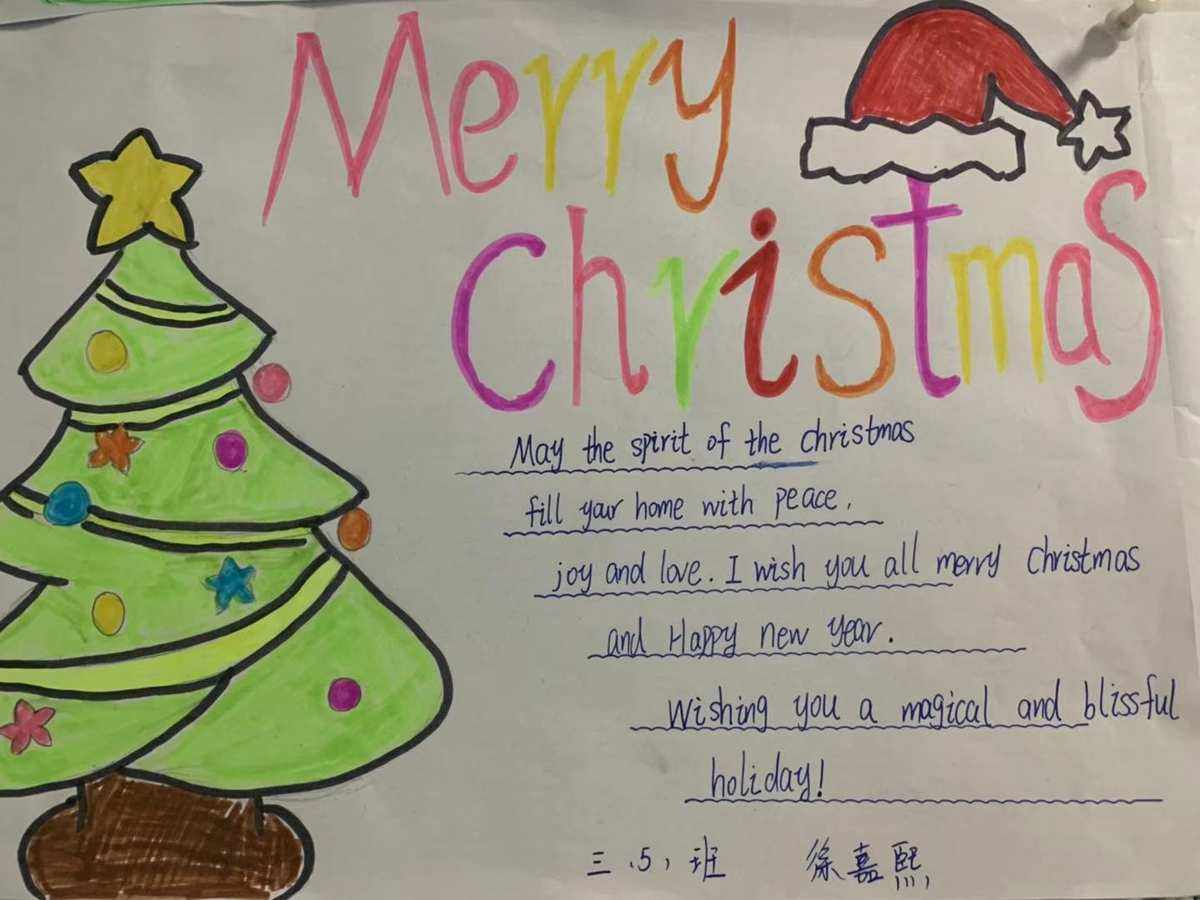 Merry
Christmas
May the spirit of the christmas
fill your home with peace,
joy and love. I wish you all merry Christmas
and Happy new year.
Wishing you a magical and blissful
holiday!
三、5、班 徐嘉熙